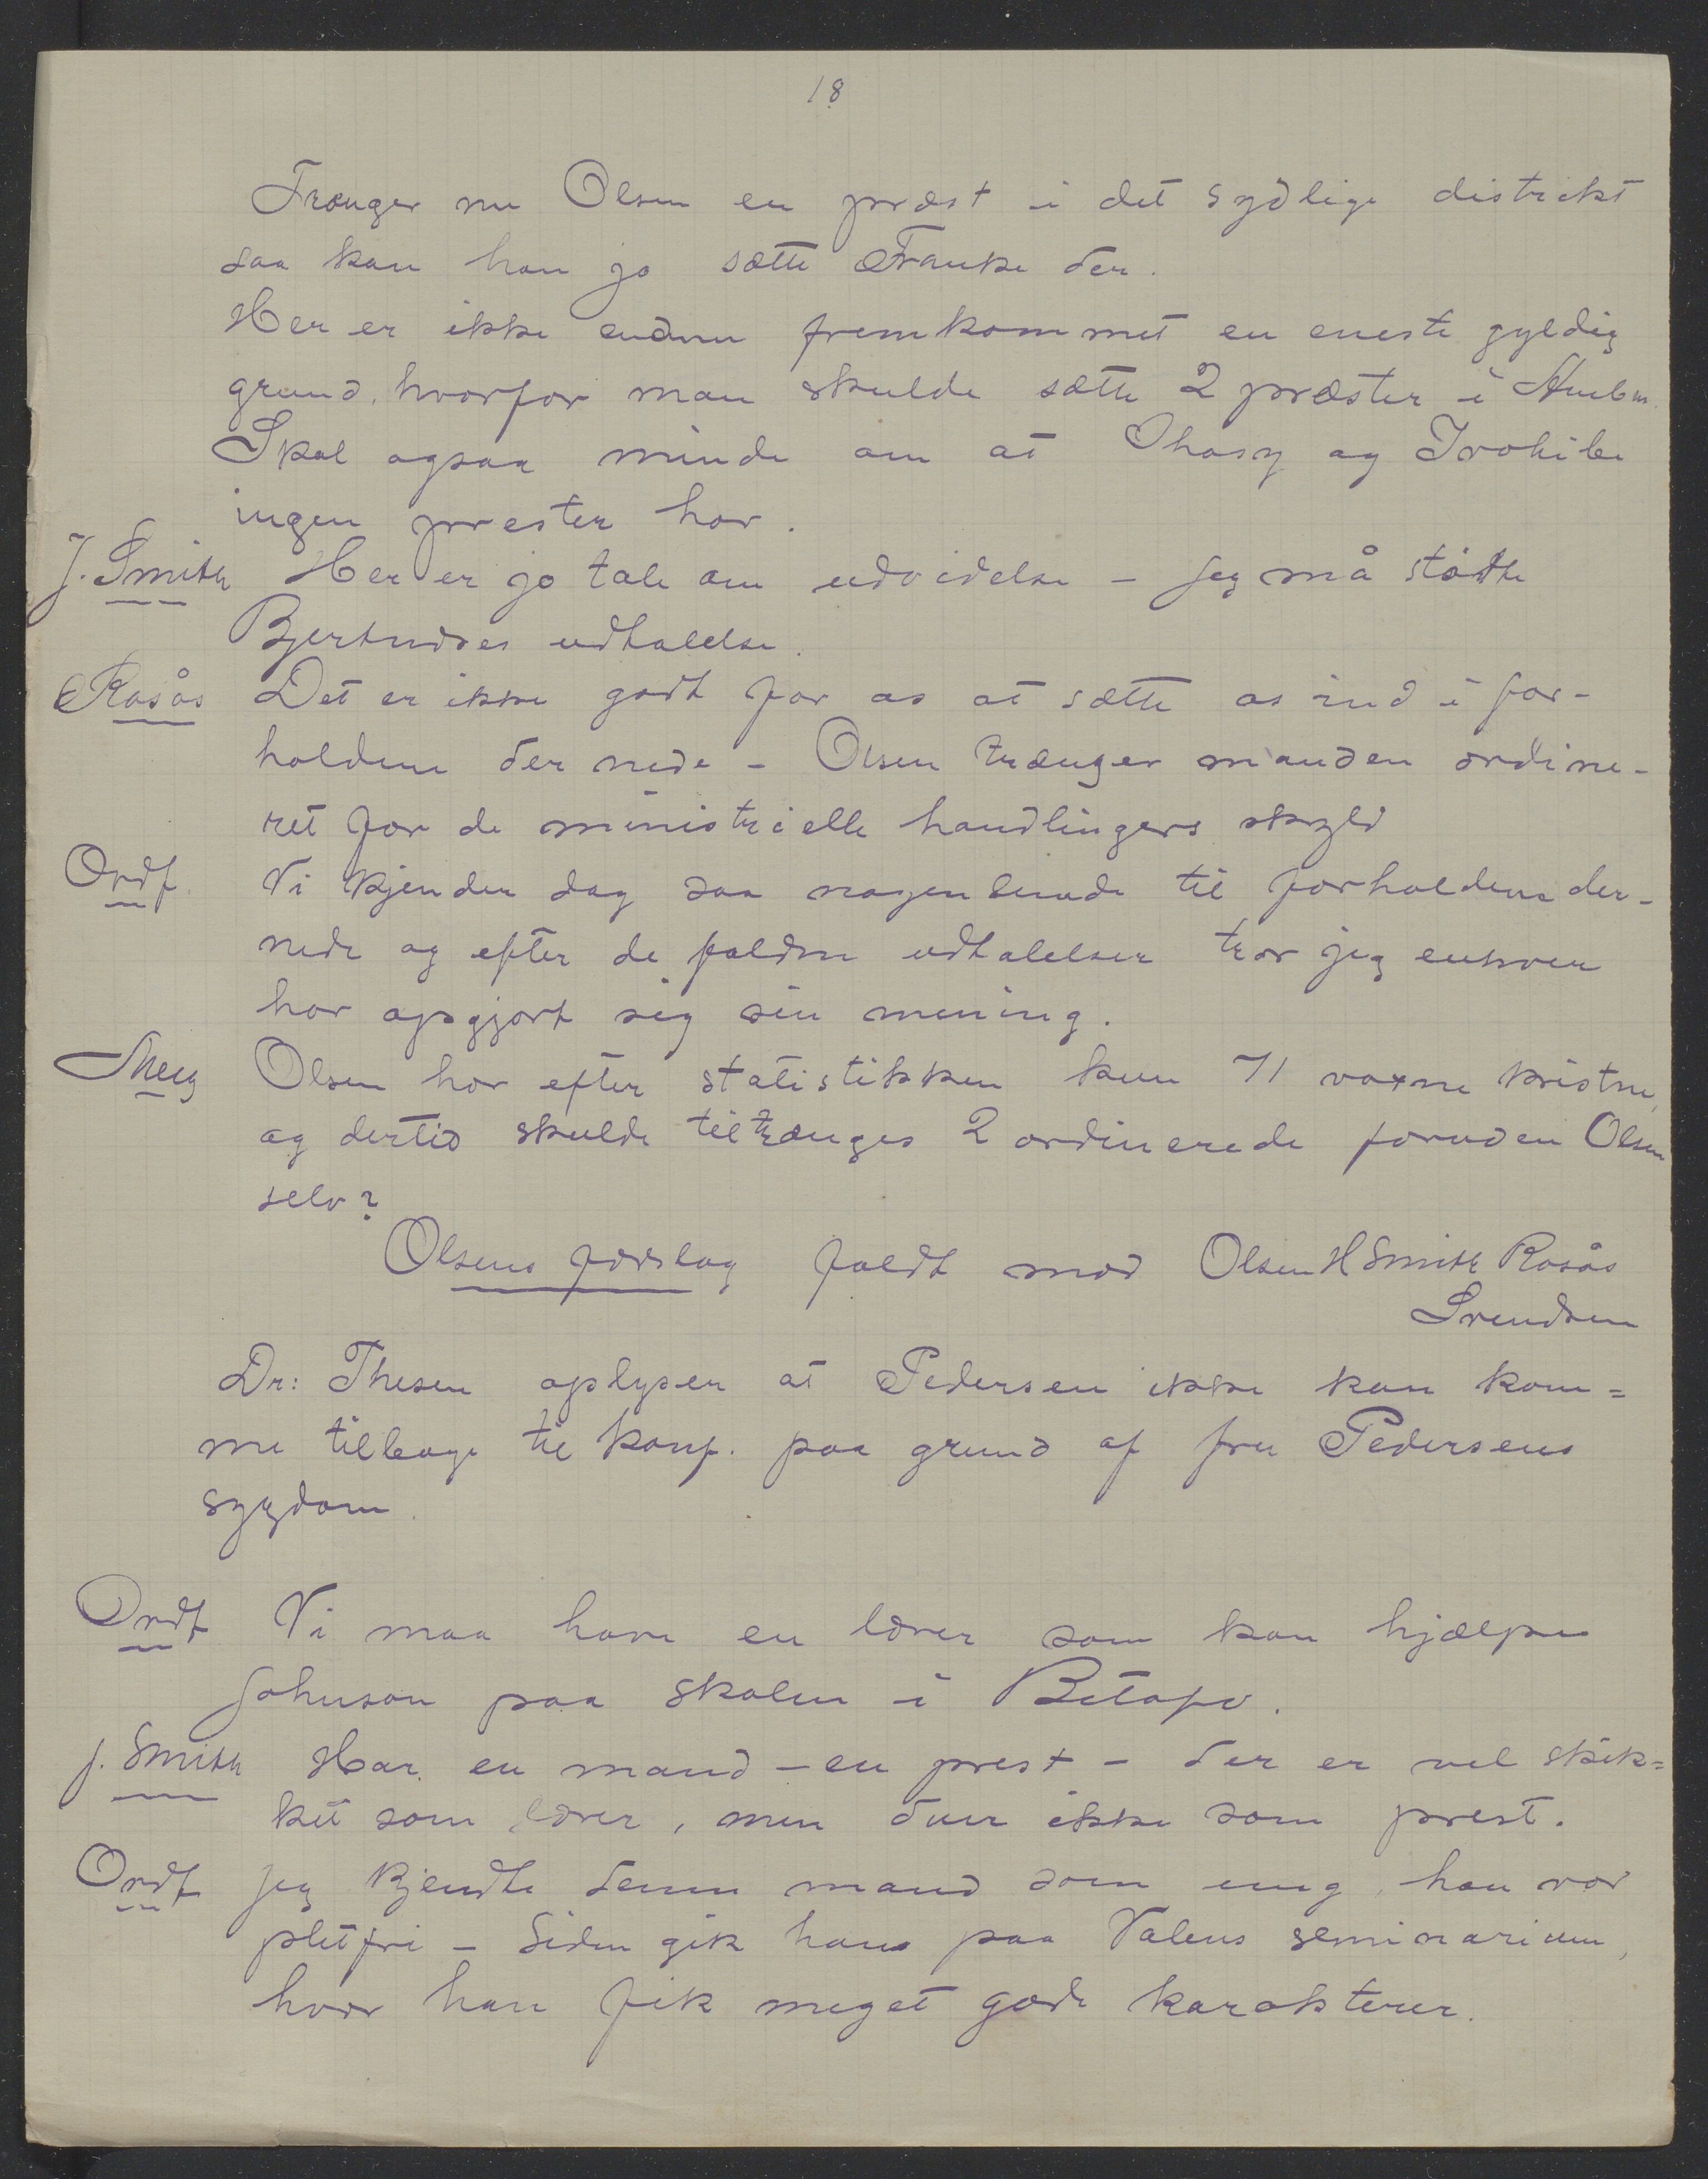 18
Trænger nu Olsen en præst i det sydlige distrikt
saa kan han jo sætte Franke der.
Her er ikke endnu fremkommet en eneste gyldig
grund, hvorfor man skulde sætte 2 præster i
Skal ogsaa minde om at Ihosy og Ivohibe
ingen prester har.
J. Smith Her er jo tale om udvidelse – jeg må støtte
Bjertnæsses udtalelse.
Rosås Det er ikke godt for os at sætte os ind i for-
holdene der nede – Olsen trænger manden ordine-
ret for de ministrielle handlingers skyld
Ordf. Vi kjender dog saa nogenlunde til forholdene der-
nede og efter de faldne udtalelser tror jeg enhver
har opgjort sig sin mening.
Meeg Olsen har efter statistikken kun 71 voxne kristne,
og dertil skulde tiltrænges 2 ordinerede foruden Olsen
selv?
Olsens forslag faldt mod Olsen H Smith Rosås
Svendsen
Dr: Thesen oplyser at Pedersen ikke kan kom=
me tilbage til konf. paa grund af fru Pedersens
sygdom.
Ordf Vi maa have en lærer som kan hjælpe
Johnson paa skolen i Betafo.
J. Smith Har en mand – en prest – der er vel skik=
ket som lærer, men duer ikke som prest.
Ordf Jeg kjendte denne mand som ung, han var
pletfri – Siden gik han paa Valens seminarium,
hvor han fik meget gode karakterer.